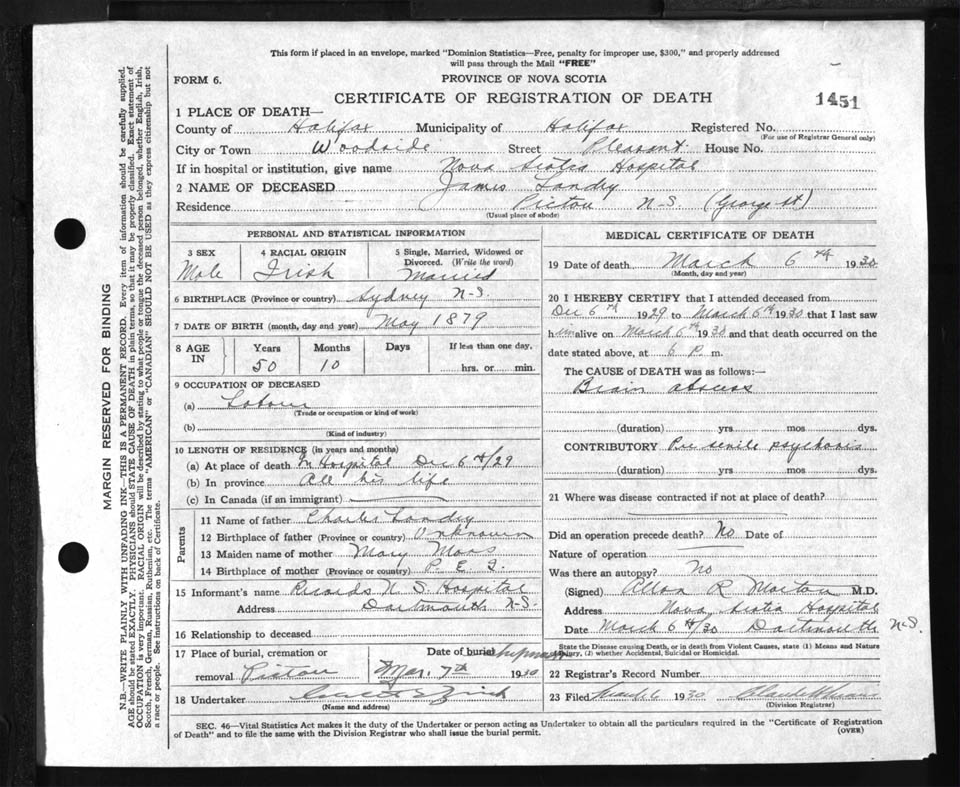 This form if placed in an envelope, marked "Dominion Statistics—Free, penalty for improper use, $300," and properly addressed
will pass through the Mail "FREE"
FORM 6.
PROVINCE OF NOVA SCOTIA
CERTIFICATE OF REGISTRATION OF DEATH
1451
1 PLACE OF DEATH—
County of Halifax Municipality of Halifax Registered No.
(For use of Registrar General only)
City or Town Woodside Street Pleasant House No.
If in hospital or institution, give name Nova Scotia Hospital
2 NAME OF DECEASED James Landry
Residence Pictou N-S. (George St)
(Usual place of abode)
PERSONAL AND STATISTICAL INFORMATION
3 SEX 4 RACIAL ORIGIN 5 Single, Married, Widowed or
Divorced. (Write the word)
Male Irish Married
6 BIRTHPLACE (Province or country) Sydney N-S.
7 DATE OF BIRTH (month, day and year) May 1879
8 AGE IN Years Months Days If less than one day.
50 10 hrs. or min.
9 OCCUPATION OF DECEASED
(a) Labour
(Trade or occupation or kind of work)
(b)
(Kind of industry)
10 LENGTH OF RESIDENCE (in years and months)
(a) At place of death In Hospital Dec 6th/29
(b) In province All his life
(c) In Canada (if an immigrant)
Parents
11 Name of father Charles Landry
12 Birthplace of father (Province or country) Unknown
13 Maiden name of mother Mary
14 Birthplace of mother (Province or country) P.E.I.
15 Informant's name Records N S Hospital
Address Dartmouth N-S.
16 Relationship to deceased
17 Place of burial, cremation or Date of burial shipment
removal Pictou Mar. 7th 1930
18 Undertaker
(Name and address)
MEDICAL CERTIFICATE OF DEATH
19 Date of death March 6th 1930
(Month, day and year)
20 I HEREBY CERTIFY that I attended deceased from
Dec 6th 1929 to March 6th 1930 that I last saw
him alive on March 6th 1930 and that death occurred on the
date stated above, at 6 p m.
The CAUSE of DEATH was as follows:—
Brain abscess
(duration) yrs mos dys.
CONTRIBUTORY Pre senile psychosis
(duration) yrs mos dys.
21 Where was disease contracted if not at place of death?
Did an operation precede death? No Date of
Nature of operation
Was there an autopsy? No
(Signed) Allan R Morton M.D.
Address Nova Scotia Hospital
Date March 6th/30 Dartmouth N-S.
State the Disease causing Death, or in death from Violent Causes, state (1) Means and Nature
Injury, (2) whether Accidental, Suicidal or Homicidal.
22 Registrar's Record Number
23 Filed March 6 1930
(Division Registrar)
SEC. 46—Vital Statistics Act makes it the duty of the Undertaker or person acting as Undertaker to obtain all the particulars required in the "Certificate of Registration
of Death" and to file the same with the Division Registrar who shall issue the burial permit. (OVER)
MARGIN RESERVED FOR BINDING
N.B.—WRITE PLAINLY WITH UNFADING INK—THIS IS A PERMANENT RECORD. Every item of information should be carefully supplied.
AGE should be stated EXACTLY. PHYSICIANS should STATE CAUSE OF DEATH in plain terms, so that it may be properly classified. Exact statement of
OCCUPATION is very important. RACIAL ORIGIN will be described by stating to what people or tongue the deceased person belonged, whether English, Irish,
Scotch, French, German, Russian, Ruthenian, etc. The terms "AMERICAN" or "CANADIAN" SHOULD NOT BE USED as they express citizenship but not
a race or people. See instructions on back of Certificate.